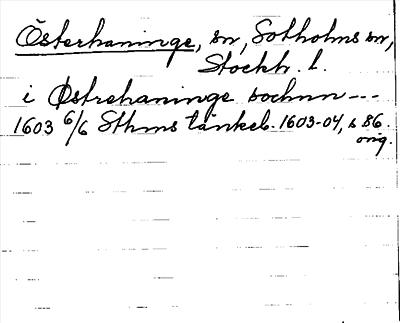 Österhaninge, sn, Sotholms sn,
Stockh. l.
i Østrehaninge sochnn ---
1603 6/6 Sthms tänkeb. 1603-04, s 86
orig.